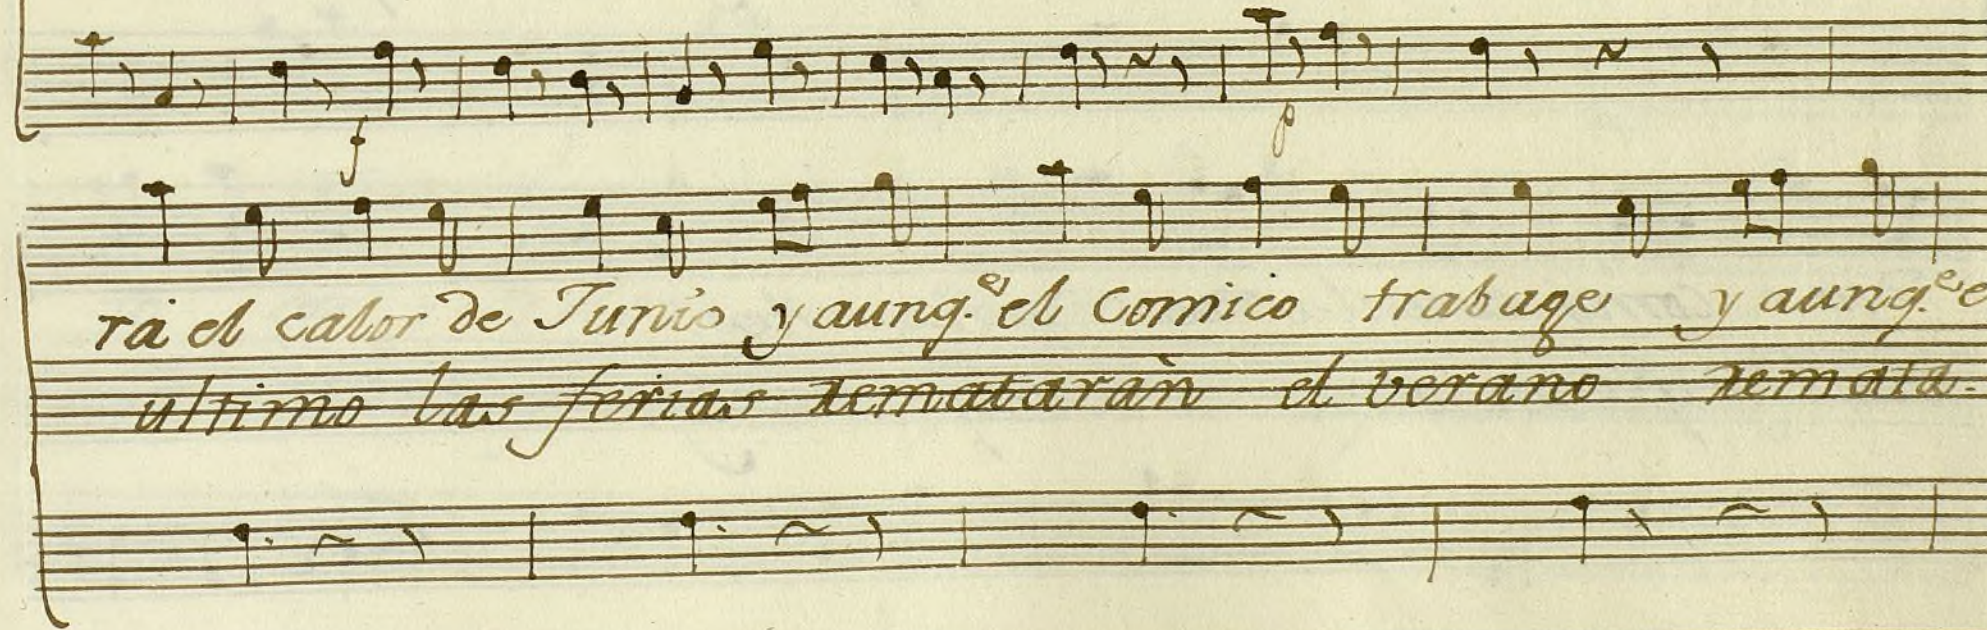 f p
rá el calor de Junio y aunq.^e el Comico trabage y aunq.^e e
ultimo las ferias remataràn el verano remata-